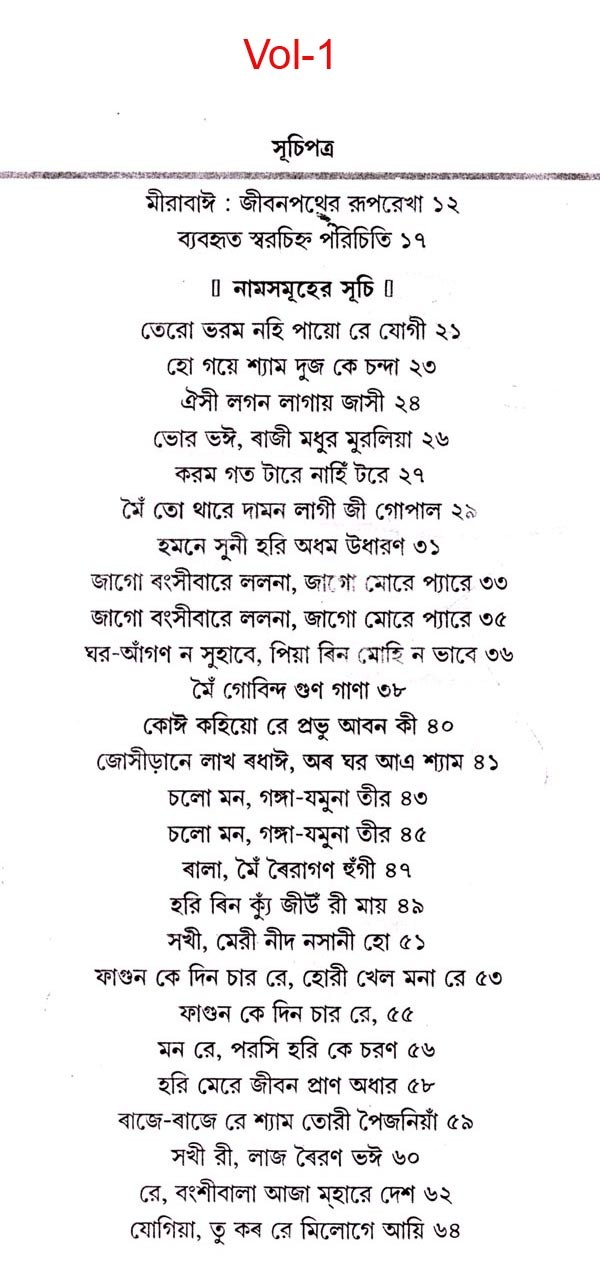 Vol-1
সূচিপত্র
মীরাবাঈ : জীবনপথের রূপরেখা ১২
ব্যবহৃত স্বরচিহ্ন পরিচিতি ১৭
▯ নামসমূহের সূচি ▯
তেরো ভরম নহি পায়ো রে যোগী ২১
হো গয়ে শ্যাম দুজ কে চন্দা ২৩
ঐসী লগন লাগায় জাসী ২৪
ভোর ভঈ, ৰাজী মধুর মুরলিয়া ২৬
করম গত টারে নাহিঁ টরে ২৭
মৈঁ তো থারে দামন লাগী জী গোপাল ২৯
হমনে সুনী হরি অধম উধারণ ৩১
জাগো ৰংসীবারে ললনা, জাগো মোরে প্যারে ৩৩
জাগো বংসীবারে ললনা, জাগো মোরে প্যারে ৩৫
ঘর-আঁগণ ন সুহাবে, পিয়া ৰিন মোহি ন ভাবে ৩৬
মৈঁ গোবিন্দ গুণ গাণা ৩৮
কোঈ কহিয়ো রে প্রভু আবন কী ৪০
জোসীড়ানে লাখ ৰধাঈ, অৰ ঘর আএ শ্যাম ৪১
চলো মন, গঙ্গা-যমুনা তীর ৪৩
চলো মন, গঙ্গা-যমুনা তীর ৪৫
ৰালা, মৈঁ ৰৈরাগণ হুঁগী ৪৭
হরি ৰিন ক্যুঁ জীউঁ রী মায় ৪৯
সখী, মেরী নীদ নসানী হো ৫১
ফাগুন কে দিন চার রে, হোরী খেল মনা রে ৫৩
ফাগুন কে দিন চার রে, ৫৫
মন রে, পরসি হরি কে চরণ ৫৬
হরি মেরে জীবন প্রাণ অধার ৫৮
ৰাজে-ৰাজে রে শ্যাম তোরী পৈজনিয়াঁ ৫৯
সখী রী, লাজ ৰৈরণ ভঈ ৬০
রে, বংশীবালা আজা ম্হারে দেশ ৬২
যোগিয়া, তু কৰ রে মিলোগে আয়ি ৬৪